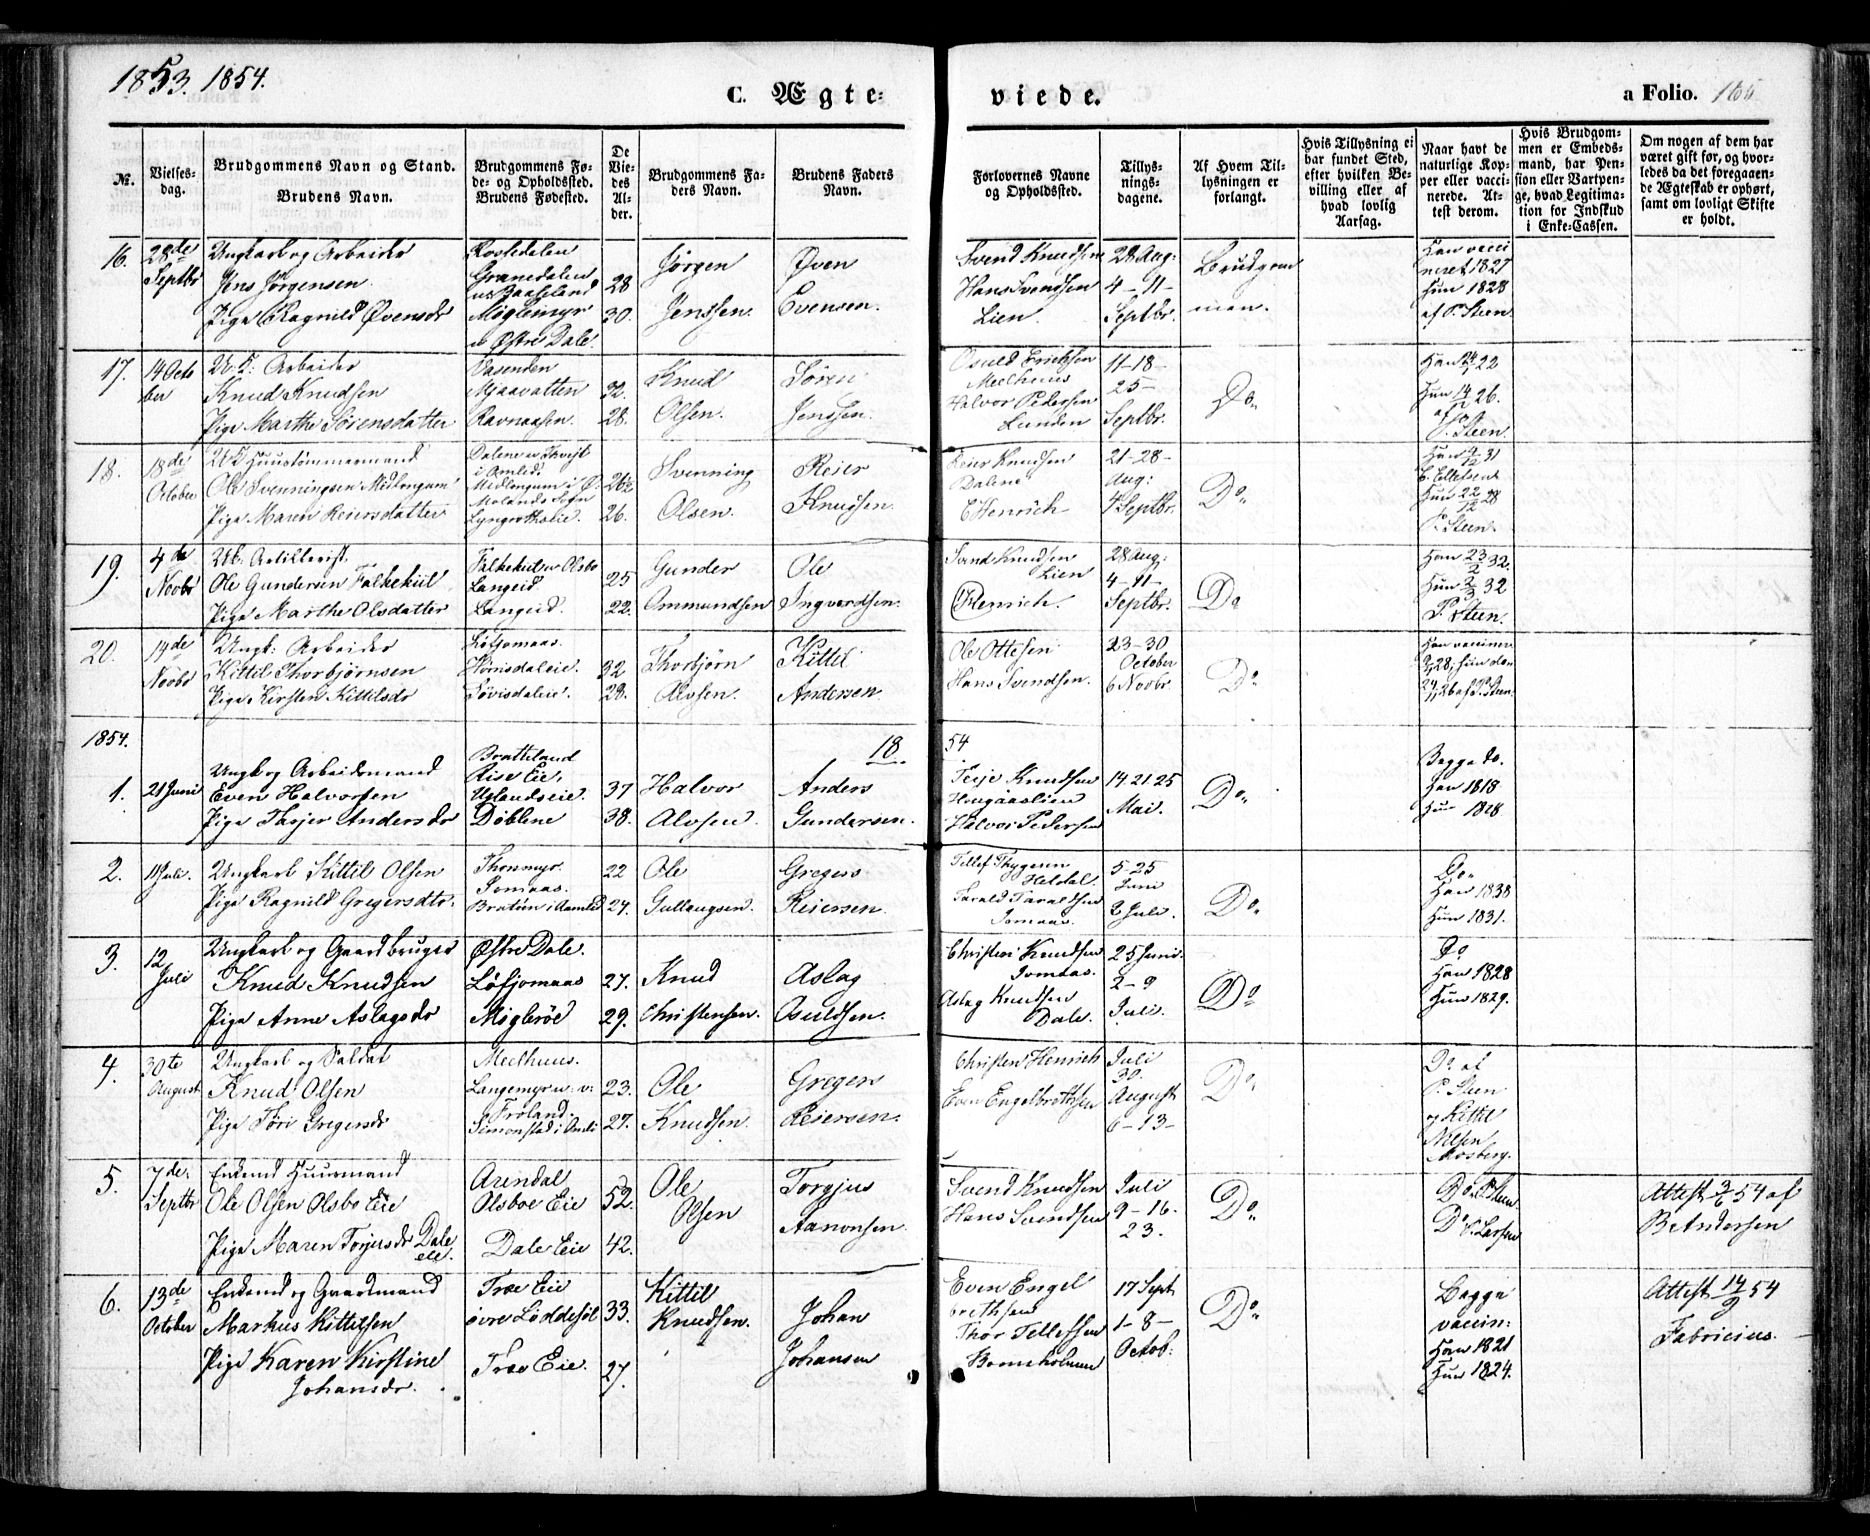 1853. 1854.
C. Ægte-
viede.
a Folio. 166
No.
Vielses-
dag.
Brudgommens Navn og Stand.
Brudens Navn.
Brudgommens Fø-
de- og Opholdssted.
Brudens Fødested.
De
Vie-
des
Al-
der.
Brudgommens Fa-
ders Navn.
Brudens Faders
Navn.
Forlovernes Navne
og Opholdssted.
Tillys-
nings-
dagene.
Af Hvem Til-
lysningen er
forlangt.
Hvis Tillysning ei
har fundet Sted,
efter hvilken Be-
villing eller af
hvad lovlig
Aarsag.
Naar havt de
naturlige Kop-
per eller vacci-
nerede. At-
test derom.
Hvis Brudgom-
men er Embeds-
mand, har Pen-
sion eller Vartpen-
ge, hvad Legitima-
tion for Indskud
i Enke-Cassen.
Om nogen af dem har
været gift før, og hvor-
ledes da det foregaaen-
de Ægteskab er ophørt,
samt om lovligt Skifte
er holdt.
16.
28de
Septbr
Ungkarl og Arbeider
Jens Jörgensen
Pige Ragnild Øvensdr
Granedalen
Möglemyr
u Østre Dale.
28
30.
Jörgen
Jenssen.
Øven
Evensen.
Svend Knudsen
Hans Svendsen
Lien.
28 Aug:
4-11-
Septbr.
Brudgom
men.
Han vacci
neret 1827
hun 1828
af P. Steen
17.
14 Octo
ber
U.K: Arbeider
Knud Knudsen
Pige Marthe Sörensdatter
Vasenden
Mjaavatten
Ravnaasen.
32.
28.
Knud
Olsen.
Sören
Jenssen.
Osuld Erichsen
Meelhuus
Halvor Pedersen
Lunden
11-18-
25-
Septbr.
Do.
Han 22
Hun 26.
af
P. Steen
18.
18de
October
U.K Huustömmermand
Ole Svenningsen Midlongum
Pige Maren Reiersdatter
i Omlid.
Midlongum i Ø.
Molands Sogn
26½
26.
Svenning
Olsen.
Reier
Knudsen.
Reier Knudsen
Dalene
C Henrich
21-28-
Aug:
4 Septbr.
Do.
Han 31
E. Ellefsen
Hun 22/12 28
P. Steen.
19.
4de
Novbr
Uk. Artillerist.
Ole Gundersen Falkekiil
Pige Marthe Olsdatter
Langeid.
Langeid.
25
22.
Gunder
Ommundsen
Ole
Ingvardsen.
Svend Knudsen
Lien
C Henrich.
28 Aug:
4-11-
Septbr.
Do
Han 23/2 32.
Hun 2/3 32
P. Steen.
20.
14de
Novbr
Ungk: Arbeider
Kittil Thorbjörnsen
Pige Kirsten Kittilsdr
Løfjomaas.
Hornsdaleie.
32
28.
Thorbjörn
Alvsen.
Kittil
Andersen
Ole Ottesen
Hans Svendsen.
23-30
October
6 Novbr
Do
1854.
18
54
1.
21 Juni
Ungk og Arbeidsmand
Even Halvorsen
Pige Tarjer Andersdr
Bratteland
Rise Eie,
Uglandseie.
Döblene
37
38.
Halvor
Alvsen.
Anders
Gundersen.
Terje Knudsen
Halvor Pedersen
14 21 25
Mai.
Do.
Begge do.
Han 1818
Hun 1828
2.
11 Juli.
Ungkarl Kittil Olsen
Pige Ragnild Gregersdtr.
Jomaas.
22
24.
Ole
Gullaugsen.
Gregers
Reiersen.
Tellef Thygesen
Heldal.
Tarald Taraldsen
Jomaas.
5-25
Juni
2 Juli.
Do.
Do.
Han 1838
Hun 1831.
3.
12
Juli
Ungkarl og Gaardbruger
Knud Knudsen
Pige Anne Aslagsdr
Østre Dale.
Løfjomaas
Miglerøe
27.
29.
Knud
Christensen.
Aslag
Osuldsen.
Christen Knudsen
Jomaas.
Aslag Knudsen
Dale.
25 Juni.
2-9
Juli.
Do
Do
Han 1828
Hun 1829.
4.
30te
August
Ungkarl og Soldat
Knud Olsen
Pige Töri Gregersdr
Meelhuus.
Langemyr u: v:
Froland.
Simonstad i Omli
23.
27.
Ole
Knudsen.
Gregers
Reiersen.
Christen Henrich
Even Engelbrethsen
Juli
30.
August
6-13-
Do.
Do af
P. Steen
og Kittil
Nilsen
Mosberg.
5.
7de.
Septbr
Enkemd Huusmand
Ole Olsen Olsbo Eie
Pige Maren Torjusdr Dale
eie.
Arendal
Olsboe Eie
Dale Eie
52.
42.
Ole
Olsen
Torgjus
Aanonsen.
Svend Knudsen
Hans Svendsen
Juli
9-16.
23.
Do.
Do. P. Steen
Do. Larsen
Attest 3/6 54 af
B Andersen
6.
13de
October
Enkemd og Gaardmand
Markus Kittilsen
Pige Karen Kirstine
Johansdr.
Træ Eie
övre Löddesöl
Træ Eie.
33.
27.
Kittil
Knudsen.
Johan
Johansen
Even Engel
brethsen
Thor Tellefsen
Bomsholmen
17 Sept
1-8-
Octob:
Do.
Begge
vaccin:
Han 1821
Hun 1824.
Attest 14/9 54
Fabricius.